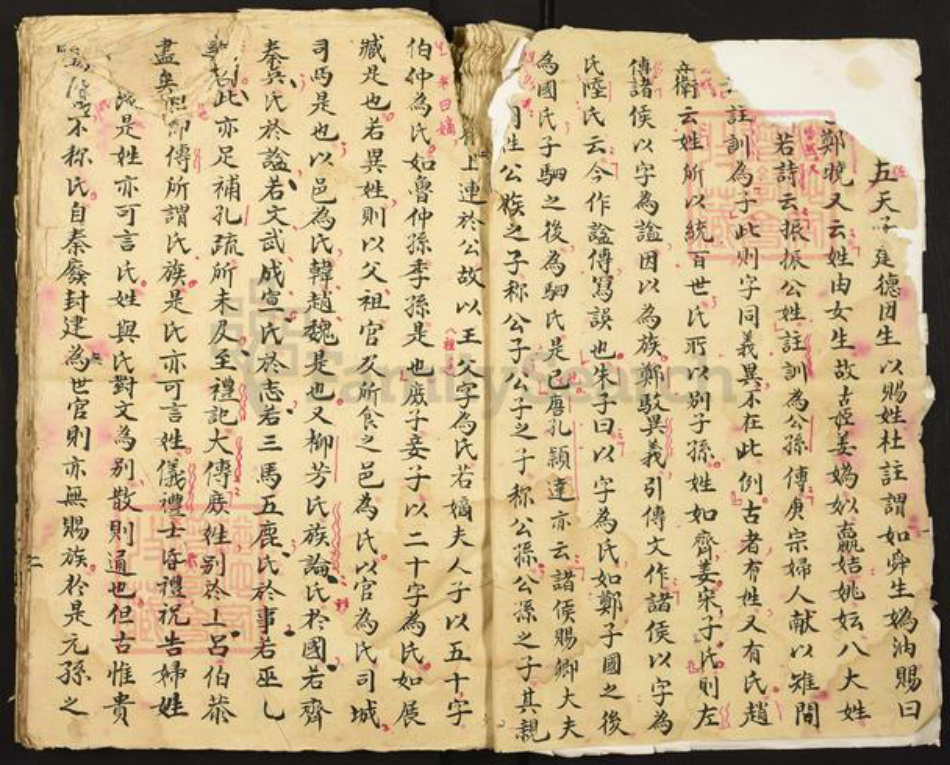 五天子建德因生以賜姓杜註謂如舜生媯汭賜曰
鄭曉又云姓由女生故古姬姜媯姒嬴姞姚妘八大姓
若詩云振振公姓註訓為公孫傳庚宗婦人献以雉間
註訓為子此則字同義異不在此例古者有姓又有氏趙
衛云姓所以統百世氏所以別子孫姓如齊姜宋子氏則左
傳諸侯以字為謚因以為族鄭駁異義引傳文作諸侯以字為
氏陸氏云今作謚傳寫誤也朱子曰以字為氏如鄭子國之後
為國氏子駟之後為駟氏是已唐孔穎達亦云諸侯賜卿大夫
同姓公族之子称公子公子之子称公孫公孫之子其親
上連於公故以王父字為氏若嫡夫人子以五十字
伯仲為氏如魯仲孫季孫是也庶子妾子以二十字為氏如展
臧是也若異姓則以父祖官及所食之邑為氏以官為氏司城
司馬是也以邑為氏韓趙魏是也又柳芳氏族論氏於國若齊
秦吳氏於謚若文武成宣氏於志若三馬五鹿氏於事若巫乚
此亦足補孔疏所未及至禮記大傳庶姓別於上呂伯恭
盡矣即傳所謂氏族是氏亦可言姓儀禮士昏禮祝告婦姓
是姓亦可言氏姓與氏對文為別散則通也但古惟貴
不称氏自秦廢封建為世官則亦無賜族於是元孫之
FamilySearch